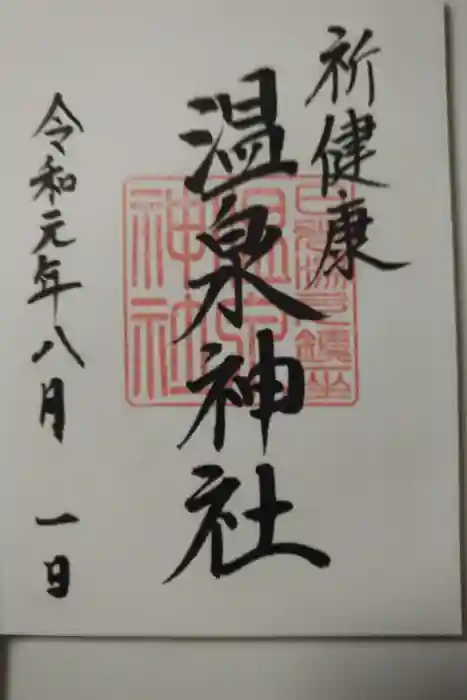 祈健康
温泉神社
令和元年八月一日
温泉神社